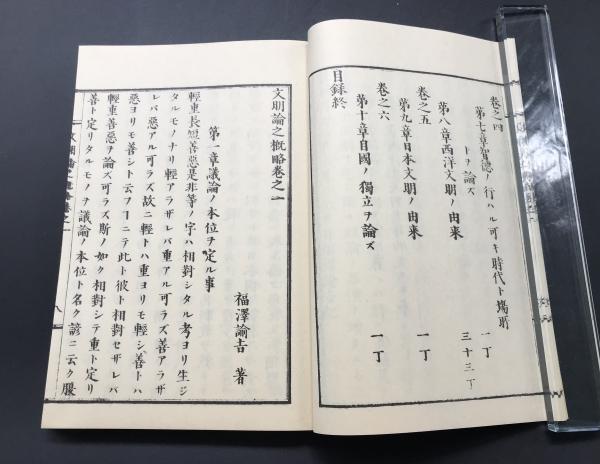 巻之四
第七章智徳ノ行ハル可キ時代ト塲所
トヲ論ズ 一丁
第八章西洋文明ノ由来 三十三丁
巻之五
第九章日本文明ノ由来 一丁
巻之六
第十章自國ノ獨立ヲ論ズ 一丁
目録終
文明論之概略巻之一
福澤諭吉 著
第一章議論ノ本位ヲ定ル事
輕重長短善惡是非等ノ字ハ相對シタル考ヨリ生ジ
タルモノナリ輕アラザレバ重アル可ラズ善アラザ
レバ惡アル可ラズ故ニ輕トハ重ヨリモ輕シ善トハ
惡ヨリモ善シト云フヿニテ此ト彼ト相對セザレバ
輕重善惡ヲ論ズ可ラズ斯ノ如ク相對シテ重ト定リ
善ト定リタルモノヲ議論ノ本位ト名ク諺ニ云ク腹